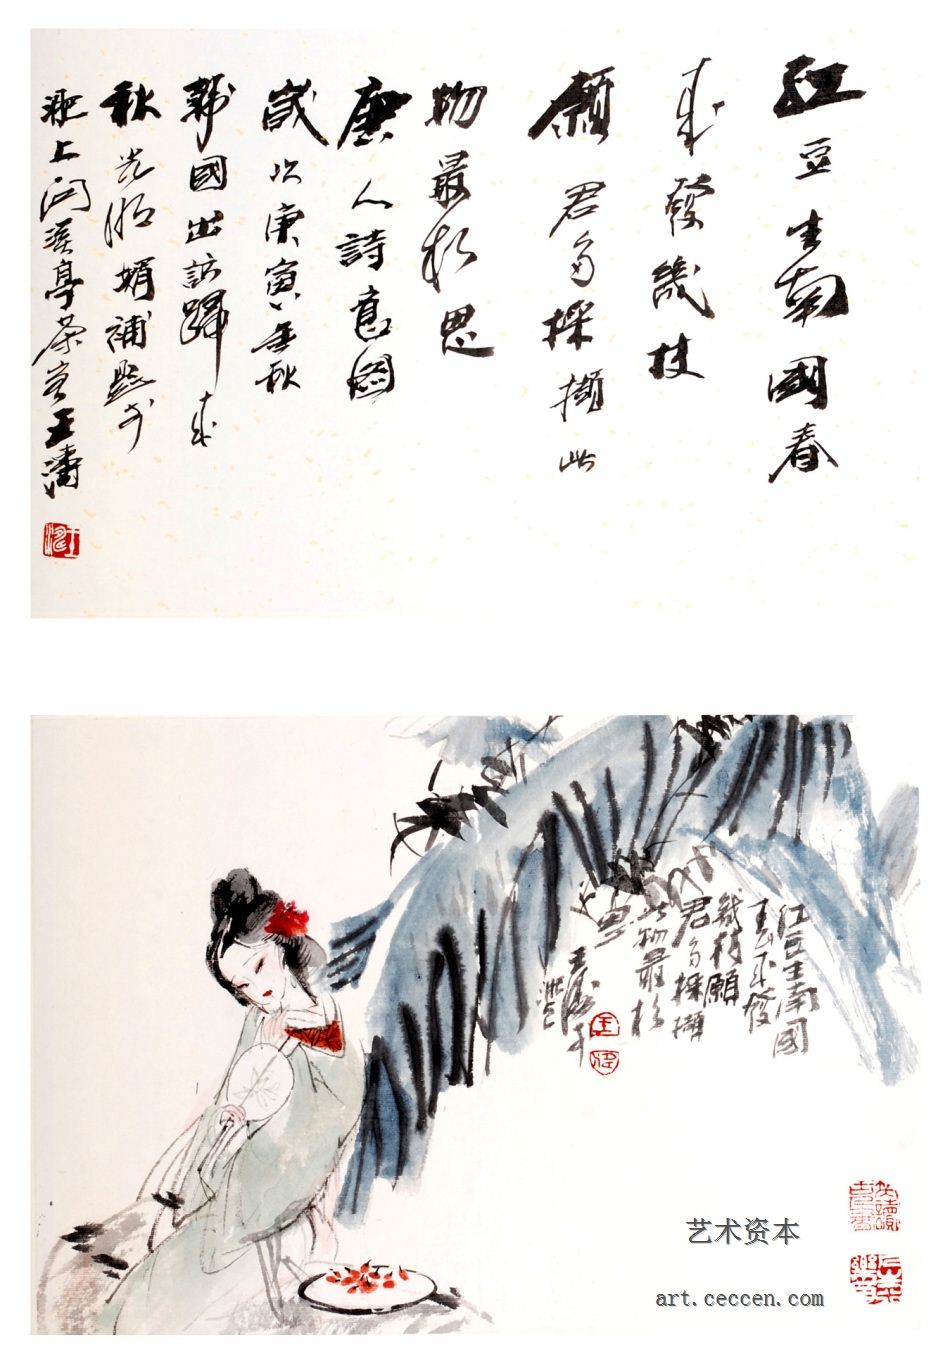 红豆生南國春
来發幾枝
願君多採擷此
物最相思
唐人詩意圖
歲次庚寅秋
韓國出訪歸来
秋光明媚補題於
淝上亭王濤
红豆生南國
春来發
幾枝願
君多採擷
此物最相
思
王濤
淝上
艺术资本
art.ceccen.com